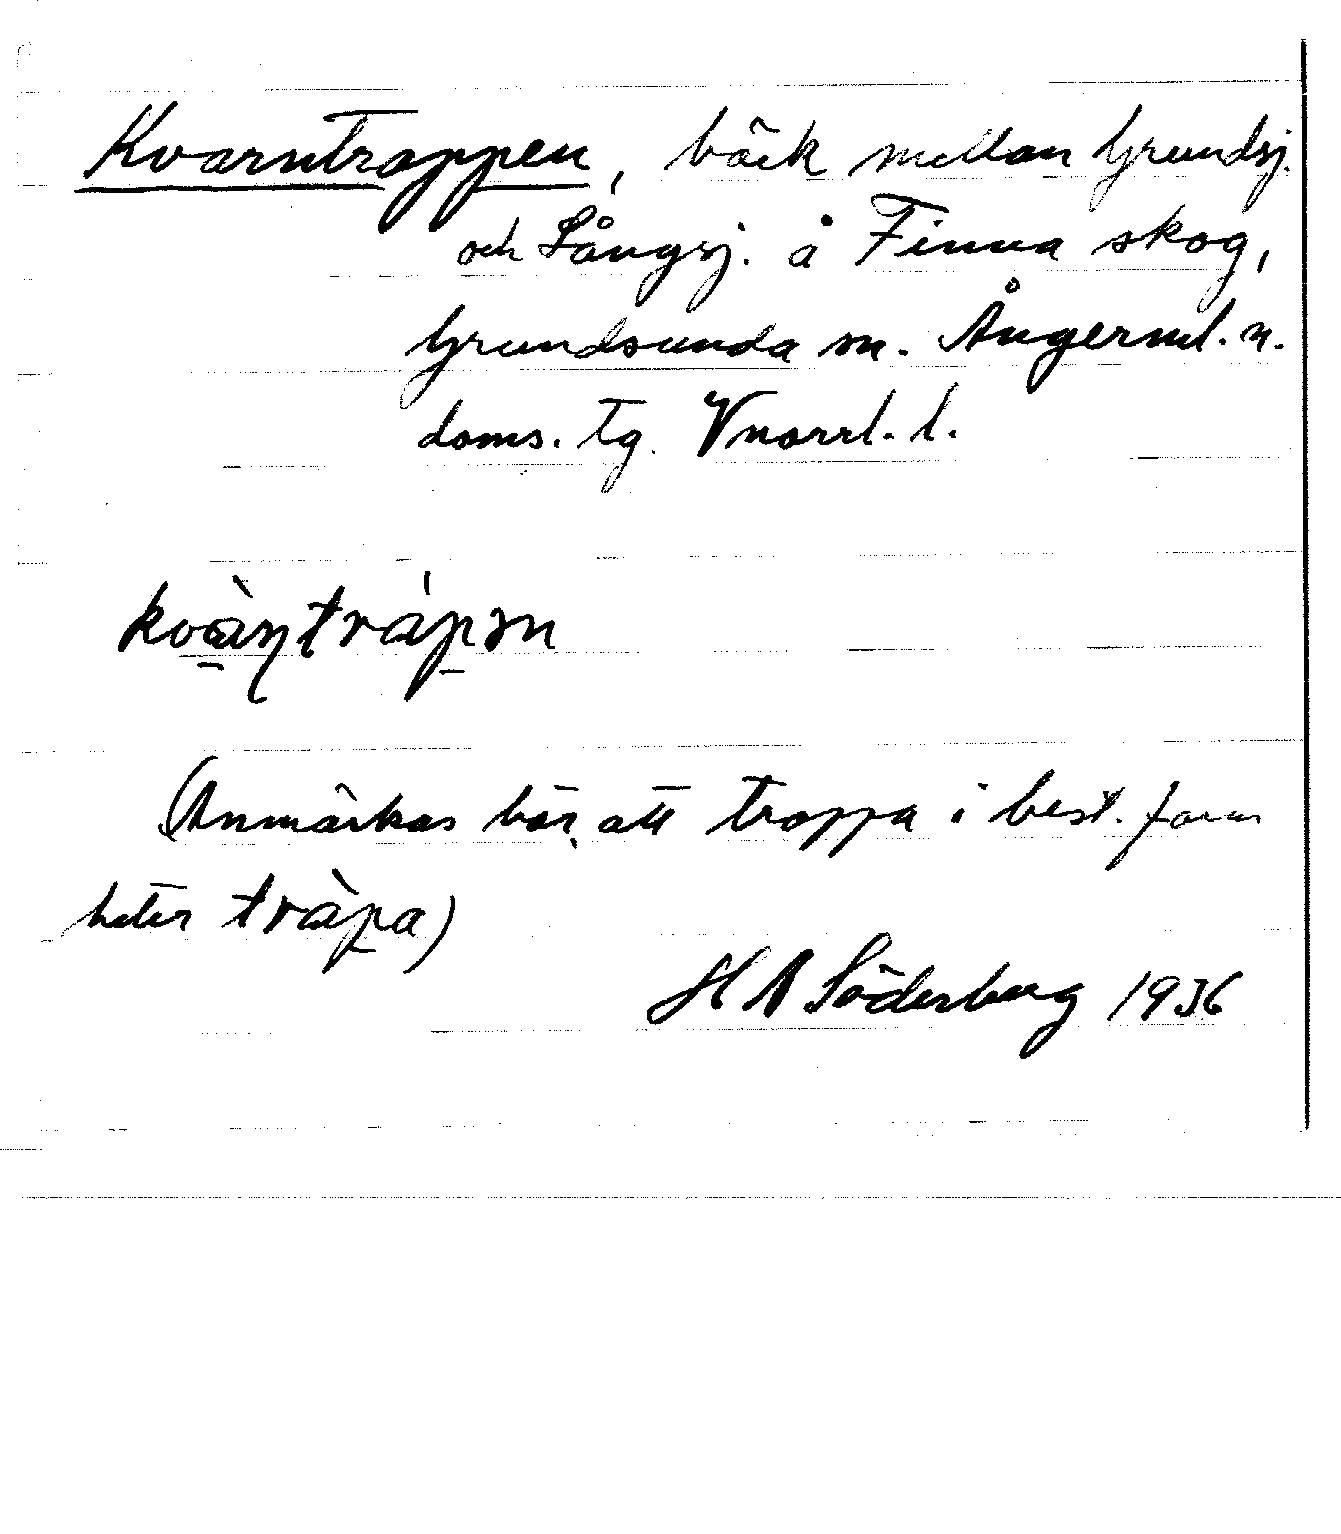 Kvarntrappen, bäck mellan Grundsj.
och Långsj. å Finna skog,
Grundsunda sn. Ångerml. n.
doms. tg. Vnorrl. l.
kvàɳtrápən
(Anmärkas bör, att trappa i best. form
heter tràpa)
H A Söderberg 1936